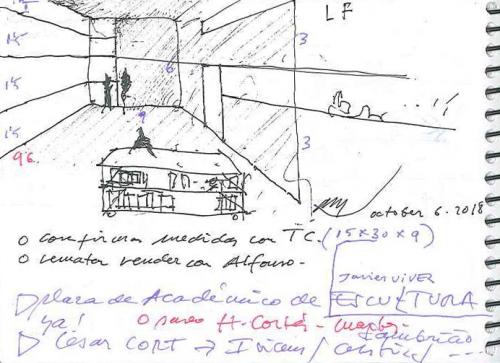 LF
15
3
15
6
15
9
15
3
96
october 6. 2018
o confirmar medidas con TC. (15 x 30 x 9)
o rematar render con Alfonso-
Javier VIVER
▷ plaza de Académico de ESCULTURA
ya!
o paseo H. Cortés -
▷ César CORT →